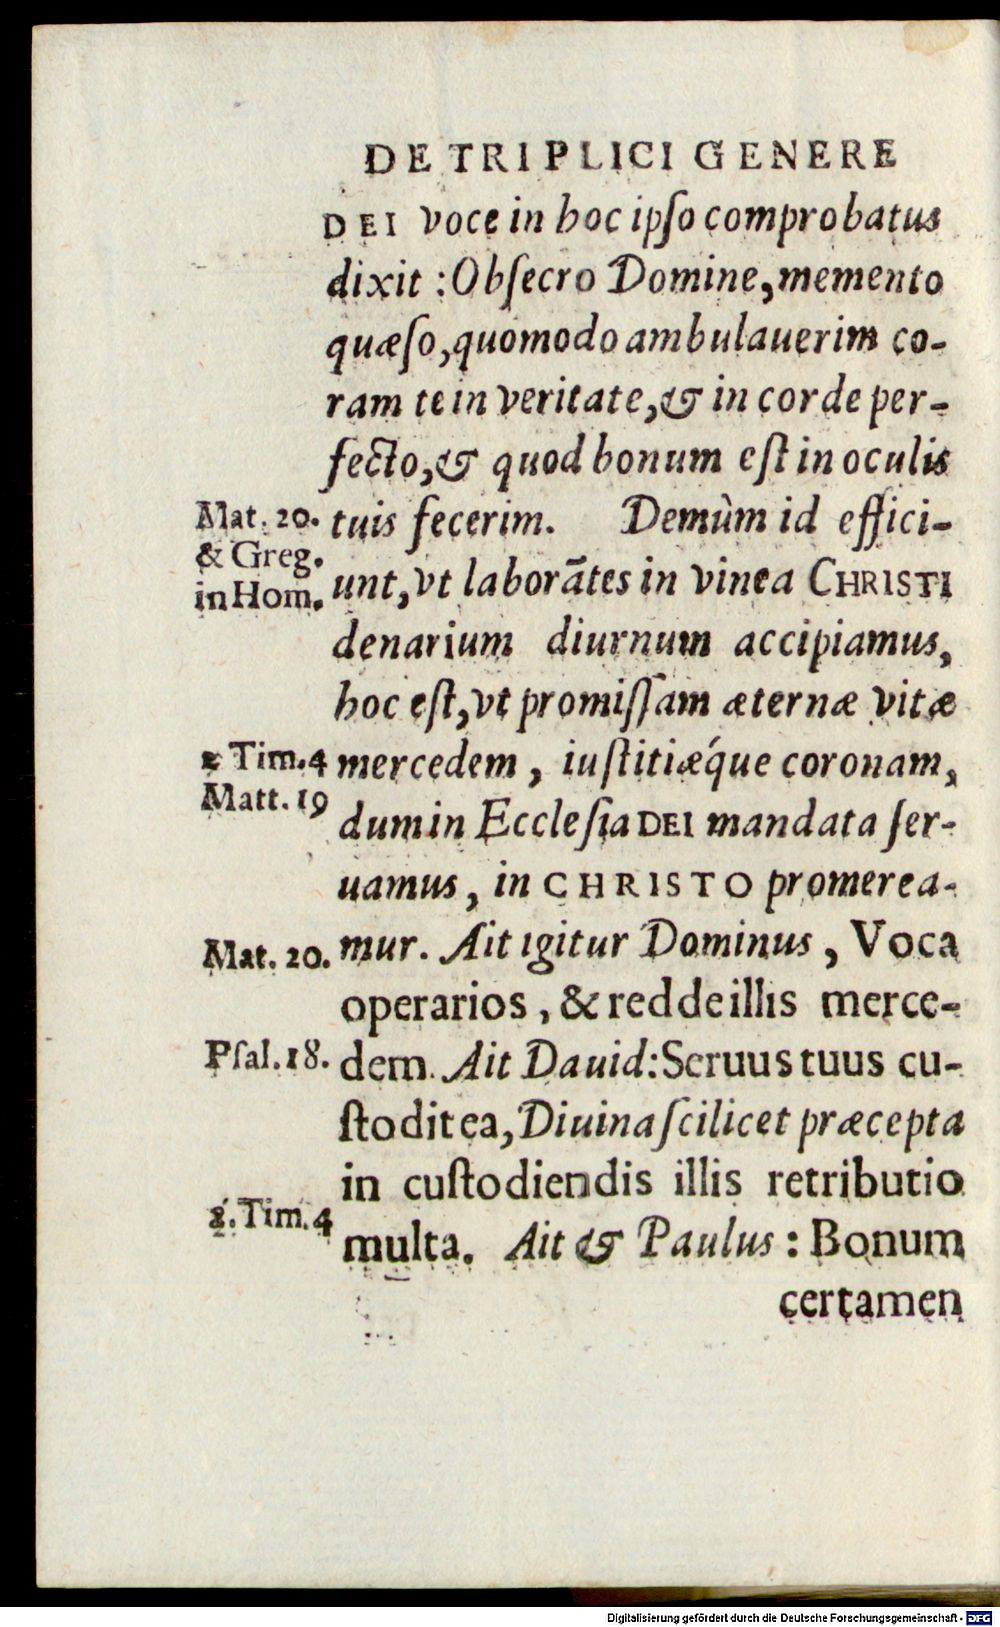 DE TRIPLICI GENERE
DEI voce in hoc ipſo comprobatus
dixit : Obſecro Domine, memento
quæſo, quomodo ambulauerim co-
ram te in veritate, & in corde per-
fecto, & quod bonum eſt in oculis
Mat. 20.
& Greg.
in Hom.
tuis fecerim. Demùm id effici-
unt, vt laborātes in vinea CHRISTI
denarium diurnum accipiamus,
hoc eſt, vt promiſſam æternæ vitæ
2 Tim. 4
Matt. 19
mercedem, iuſtitiǽque coronam,
dum in Eccleſia DEI mandata ſer-
uamus, in CHRISTO promerea-
Mat. 20.
mur. Ait igitur Dominus, Voca
operarios, & redde illis merce-
Pſal. 18.
dem. Ait Dauid: Seruus tuus cu-
ſtodit ea, Diuina ſcilicet præcepta
in cuſtodiendis illis retributio
2. Tim. 4
multa. Ait & Paulus : Bonum
certamen
Digitalisierung gefördert durch die Deutsche Forschungsgemeinschaft - DFG